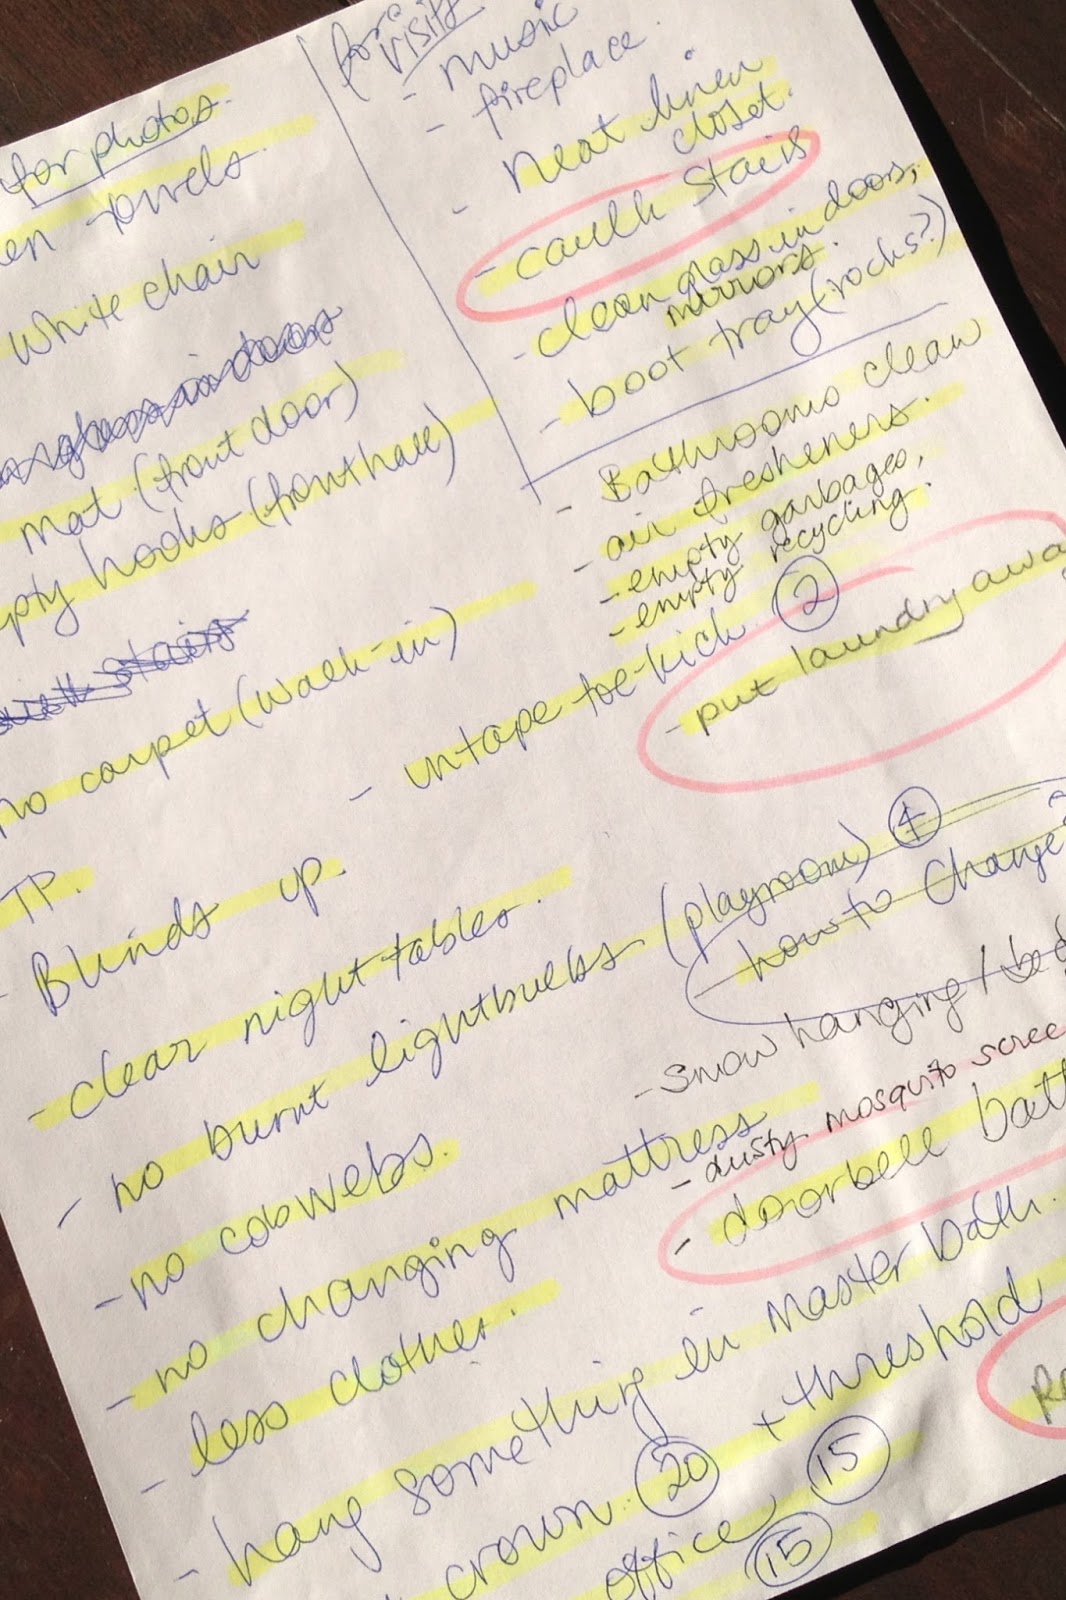 for photos.
towels.
white chair
mat (front door)
hooks (front hall)
no carpet (walk-in)
TP.
- Blinds up.
- clear night tables.
- no burnt lightbulbs (playroom) 4
- how to change?
- no cobwebs.
- no changing mattress
- less clothes.
- hang something in master bath.
crown. 20 + threshold 15
office 15
for visits
- music
- fireplace
- neat linen
closet.
- caulk stairs
- clean glass in doors,
mirrors.
- boot tray (rocks?)
- Bathrooms clean
- air fresheners.
- empty garbages,
- empty recycling.
- untape toe-kick. 2
- put laundry away
- snow hanging /
- dusty mosquito
- doorbell